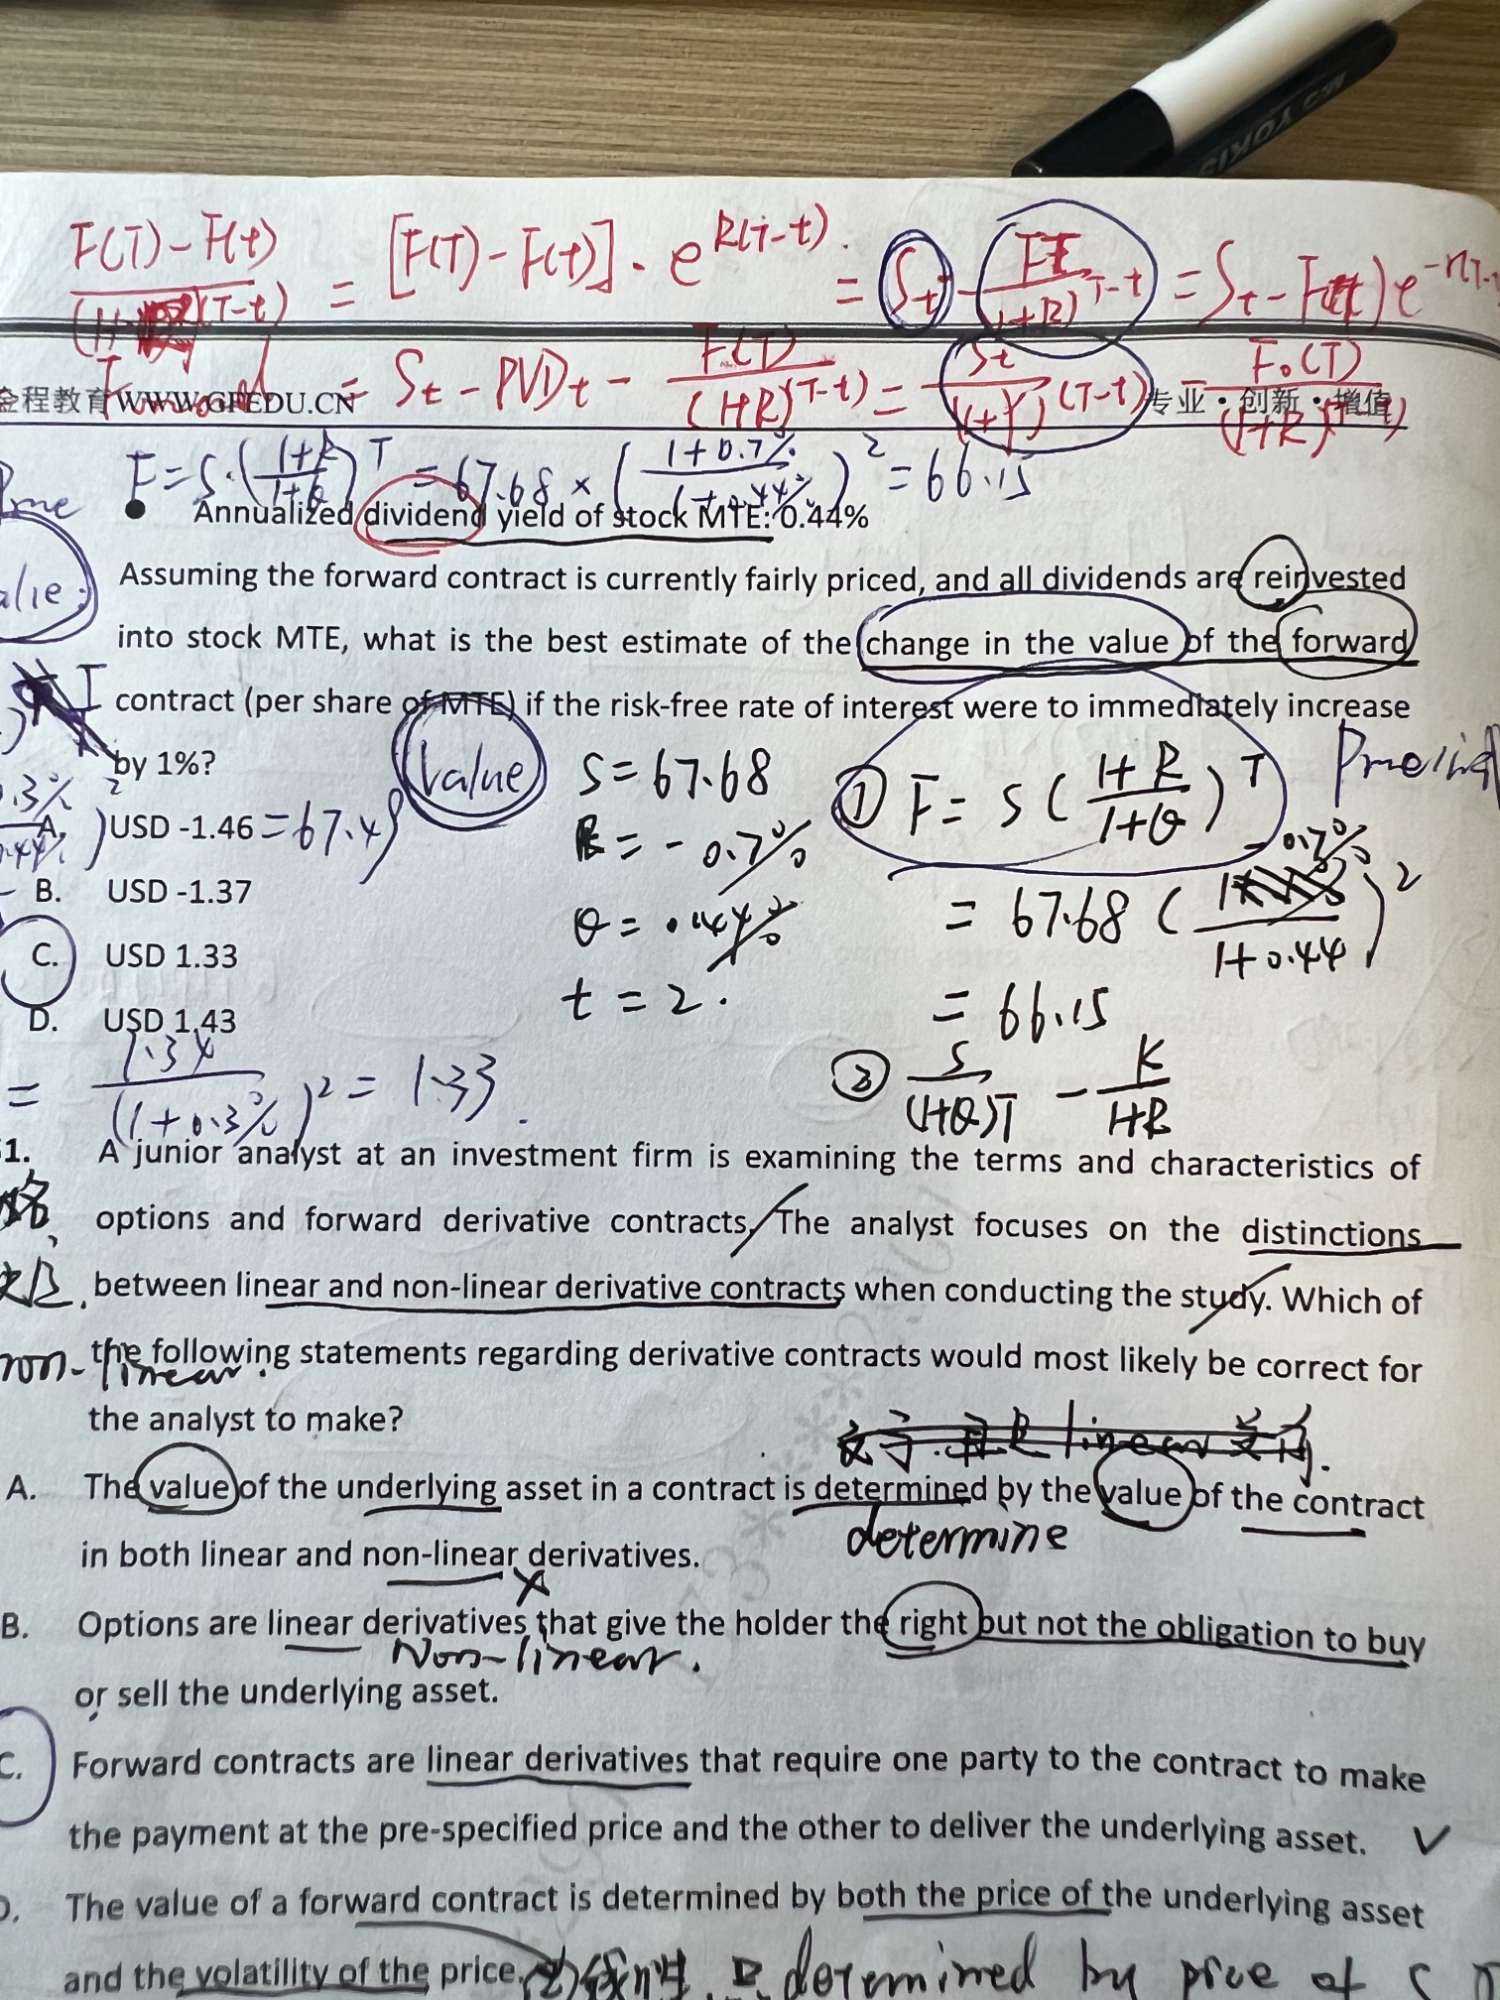 F(T)-F(t) / (T-t) = [F(T)-F(t)]·e^R(T-t) = St - / (1+R)^T-t = St -
= St - PVDt - F(T) / (1+R)^(T-t) = St / (1+Y)^(T-t) - F0(T) / (1+R)
金程教育 WWW.GFEDU.CN 专业·创新·增值
F=S·(1+R / 1+Q)^T = 67.68 × (1+0.7% / 1+0.44%)^2 = 66.15
● Annualized dividend yield of stock MTE: 0.44%
Assuming the forward contract is currently fairly priced, and all dividends are reinvested
into stock MTE, what is the best estimate of the change in the value of the forward
contract (per share of MTE) if the risk-free rate of interest were to immediately increase
by 1%?
value
S=67.68
① F = S(1+R / 1+Q)^T
R=-0.7%
A. USD -1.46 = 67.49
-0.7%
B. USD -1.37
Q=.44%
= 67.68 ( / 1+0.44)^2
C. USD 1.33
t=2.
= 66.15
D. USD 1.43
= 1.34 / (1+0.3%)^2 = 1.33.
② S / (1+Q)T - K / 1+R
1. A junior analyst at an investment firm is examining the terms and characteristics of
options and forward derivative contracts. The analyst focuses on the distinctions
between linear and non-linear derivative contracts when conducting the study. Which of
the following statements regarding derivative contracts would most likely be correct for
non-linear.
the analyst to make?
A. The value of the underlying asset in a contract is determined by the value of the contract
determine
in both linear and non-linear derivatives.
B. Options are linear derivatives that give the holder the right but not the obligation to buy
Non-linear.
or sell the underlying asset.
C. Forward contracts are linear derivatives that require one party to the contract to make
the payment at the pre-specified price and the other to deliver the underlying asset. ✓
D. The value of a forward contract is determined by both the price of the underlying asset
and the volatility of the price.
determined by price of S